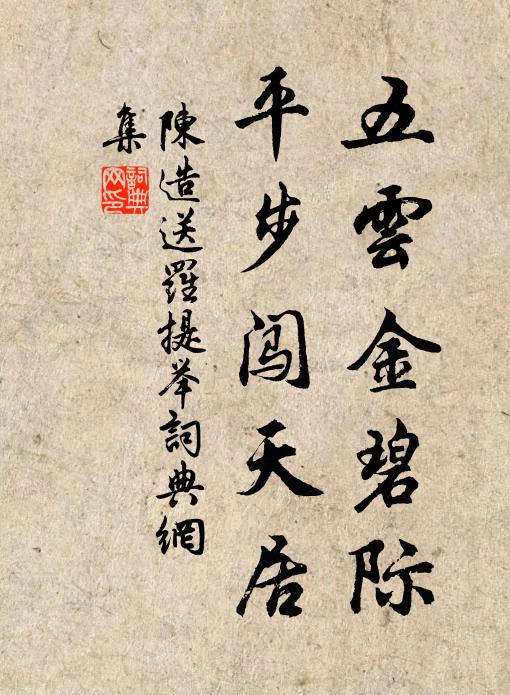 五雲金碧际
平步闯天居
陳造送羅提举詞典網
集
詞典网印